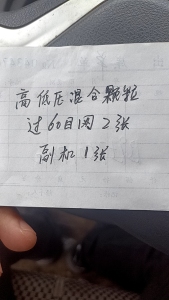 高低压混合颗粒
过60目网2张
副机1张